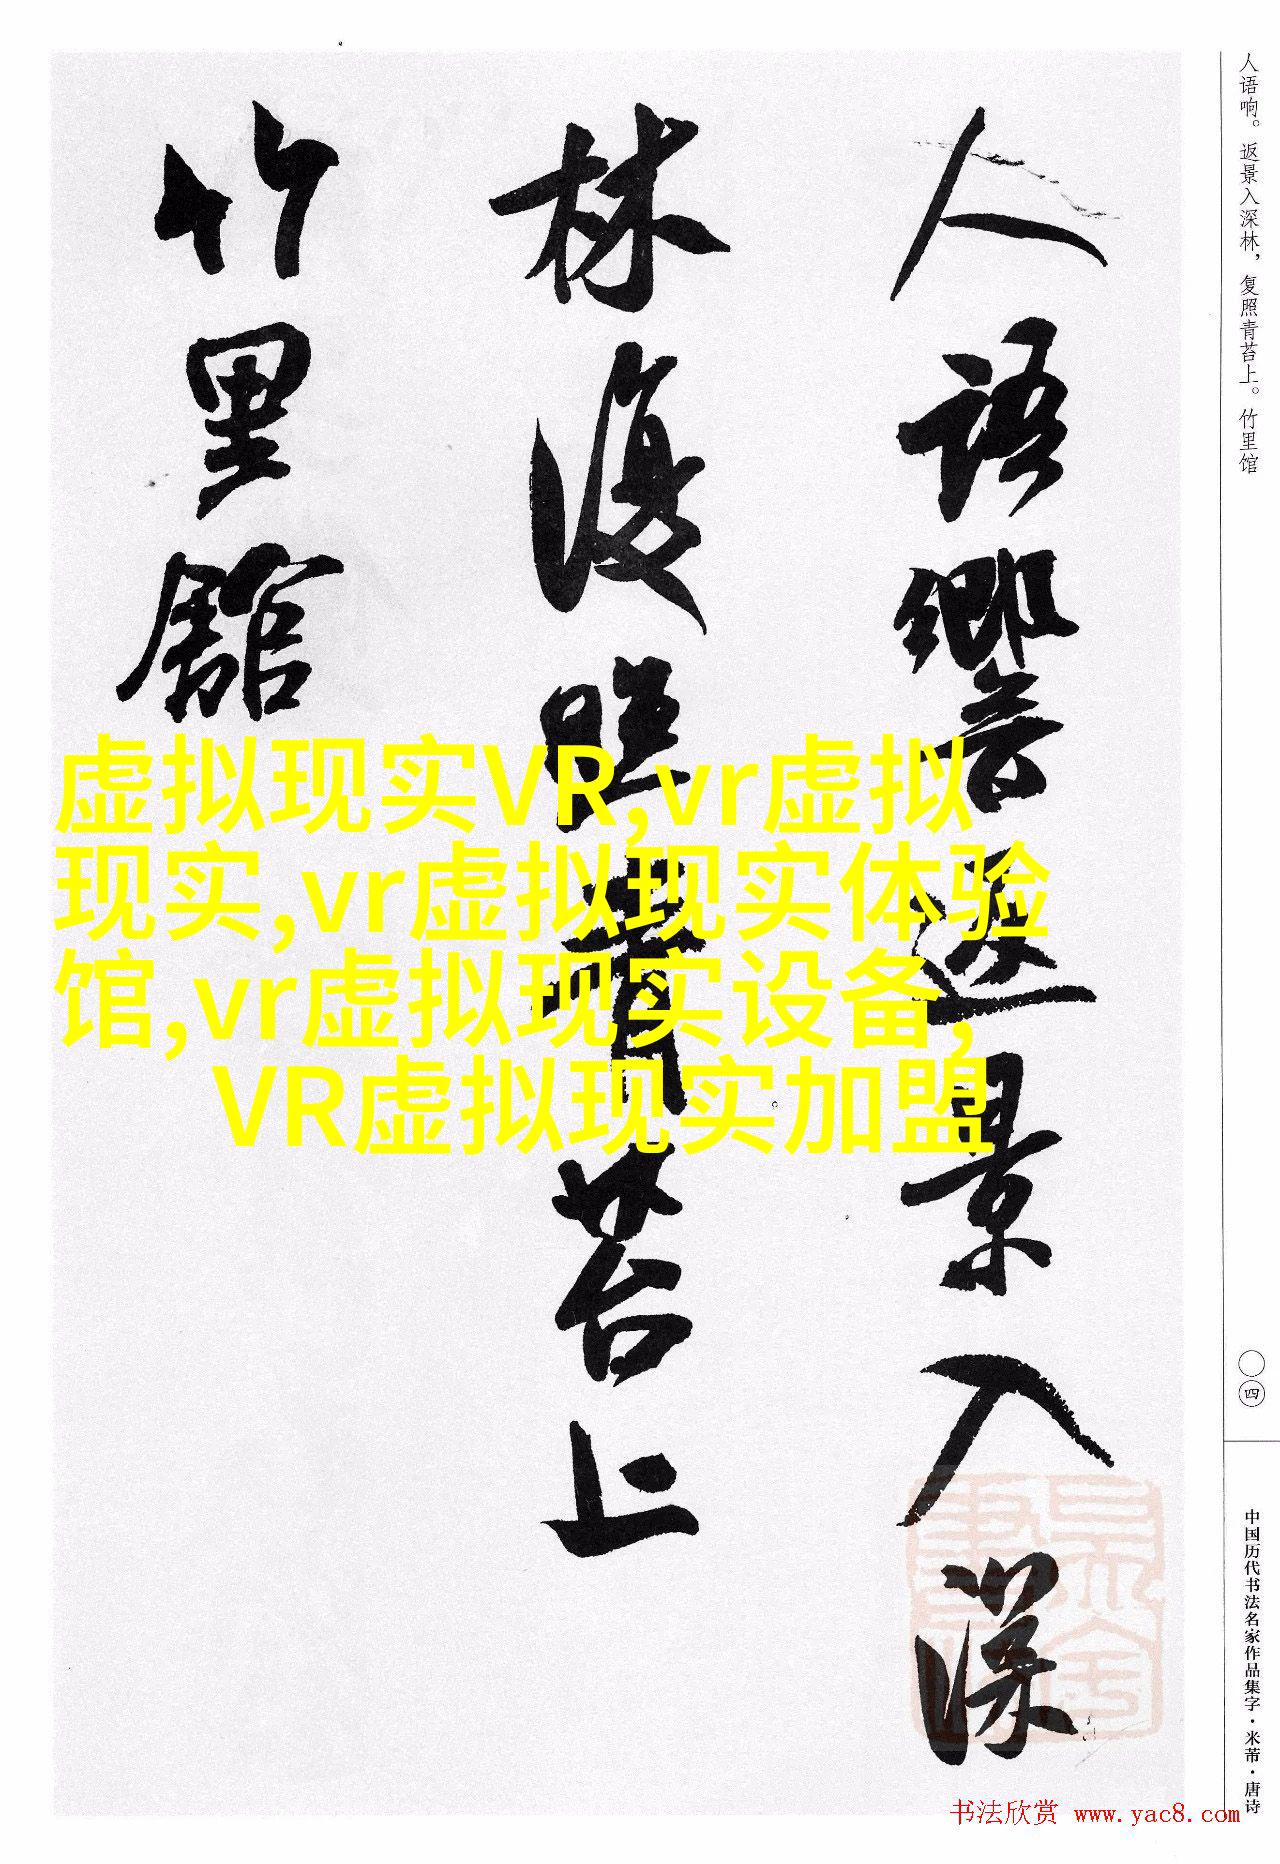 人语响。返景入深林，复照青苔上。竹里馆
人語響返景入深
林復照青苔上
竹里館
虚拟现实VR,vr虚拟
现实,vr虚拟现实体验
馆,vr虚拟现实设备,
VR虚拟现实加盟
〇四
中国历代书法名家作品集字·米芾·唐诗
书法欣赏 www.yac8.com